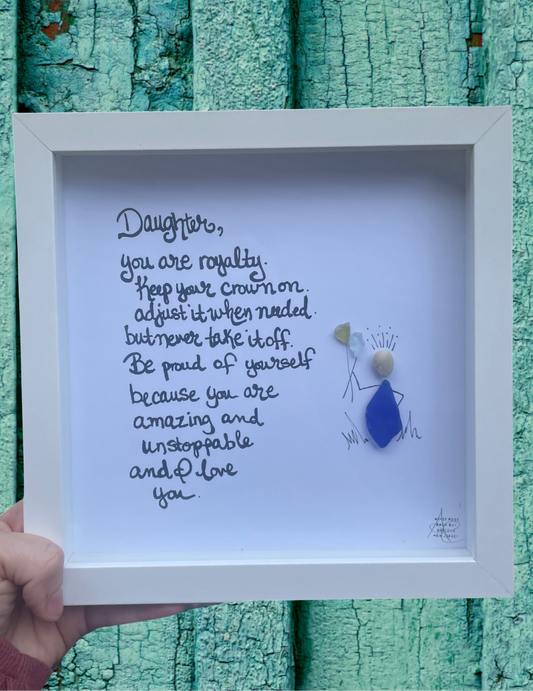 Daughter,
you are royalty.
Keep your crown on.
adjust it when needed.
but never take it off.
Be proud of yourself
because you are
amazing and
unstoppable
and I love
you.